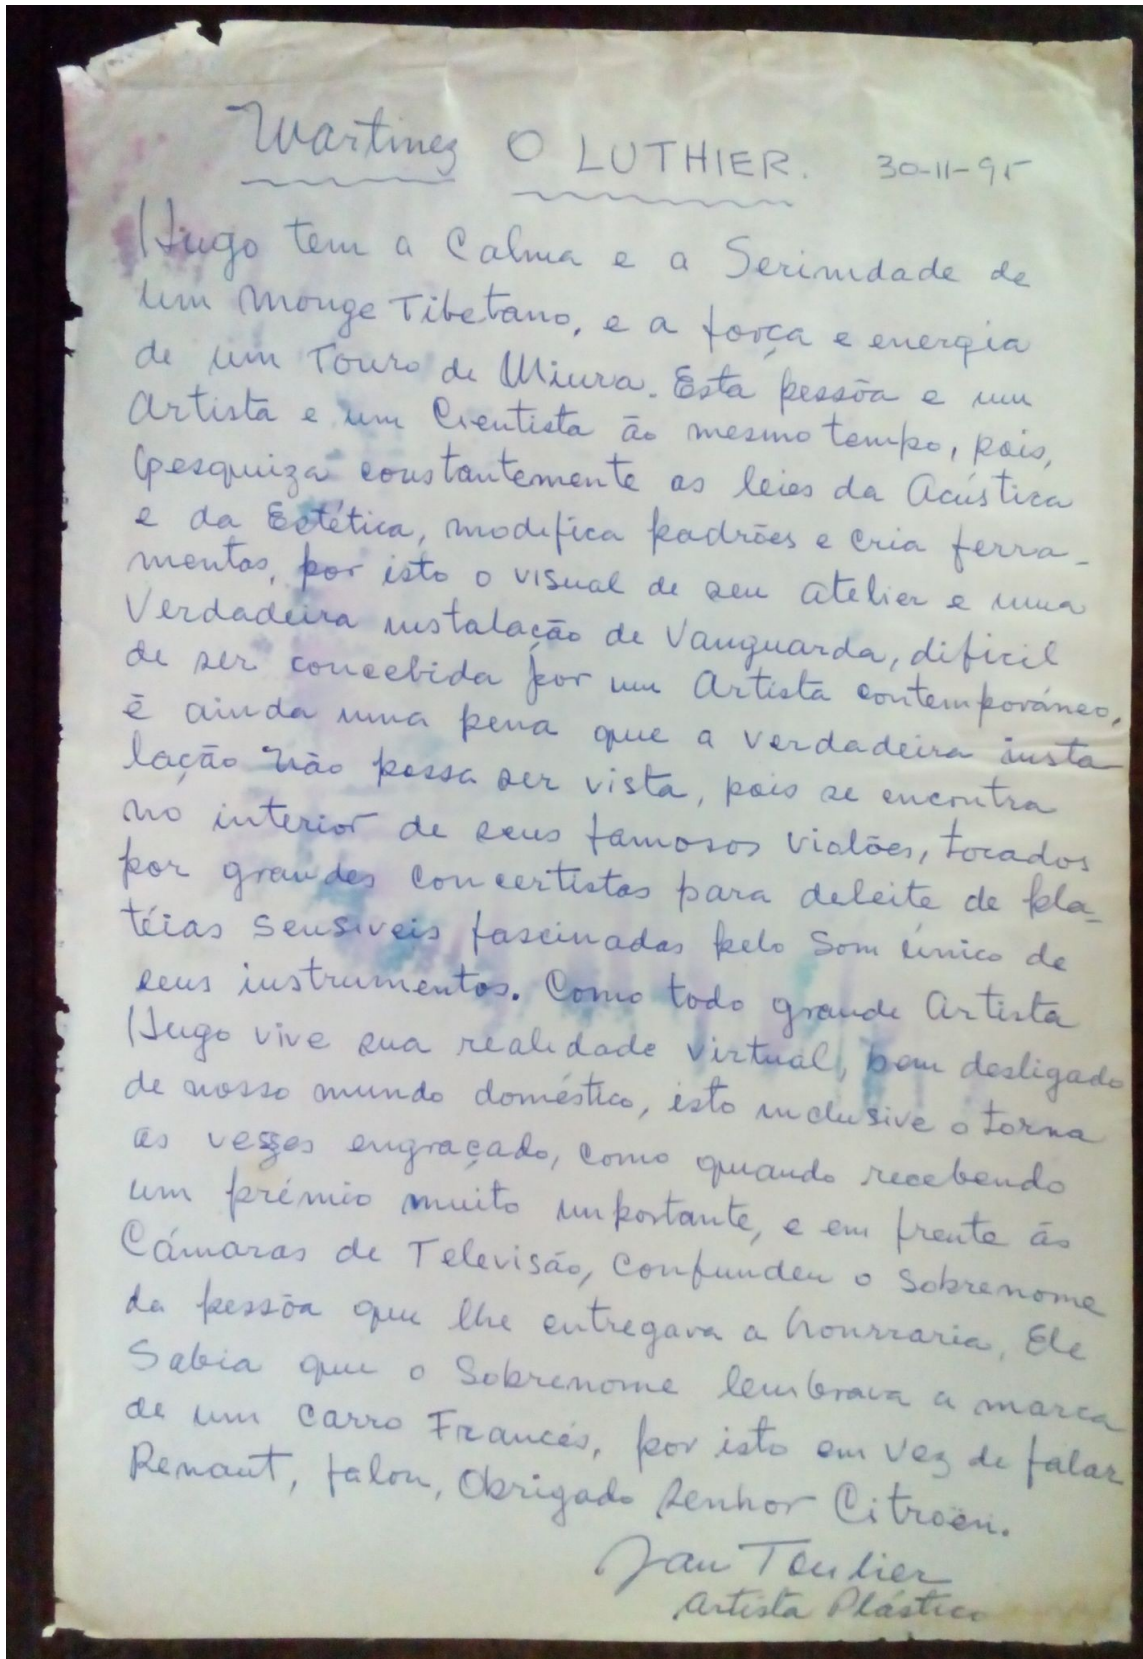 Martinez O LUTHIER. 30-11-95
Hugo tem a Calma e a Serinidade de
um monge Tibetano, e a força e energia
de um Touro de Miura. Esta pessôa e um
Artista e um Cientista ão mesmo tempo, pois,
pesquiza constantemente as leies da Acústica
e da Estética, modifica padrões e cria ferra-
mentas, por isto o visual de seu atelier e uma
Verdadeira instalação de Vanguarda, dificil
de ser concebida por um Artista contemporáneo,
é ainda uma pena que a verdadeira insta
lação não possa ser vista, pois se encontra
no interior de seus famosos violões, tocados
por grandes concertistas para deleite de pla-
téias sensiveis fascinadas pelo som único de
seus instrumentos. Como todo grande Artista
Hugo vive sua realidade virtual, bem desligado
de nosso mundo doméstico, isto inclusive o torna
as vezes engraçado, como quando recebendo
um prémio muito importante, e em frente ás
Cámaras de Televisão, confundeu o sobrenome
da pessôa que lhe entregava a honrraria, Ele
Sabia que o Sobrenome lembrava a marca
de um carro Francés, por isto em vez de falar
Renaut, falou, Obrigado senhor Citroën.
Jan Teulier
Artista Plástico